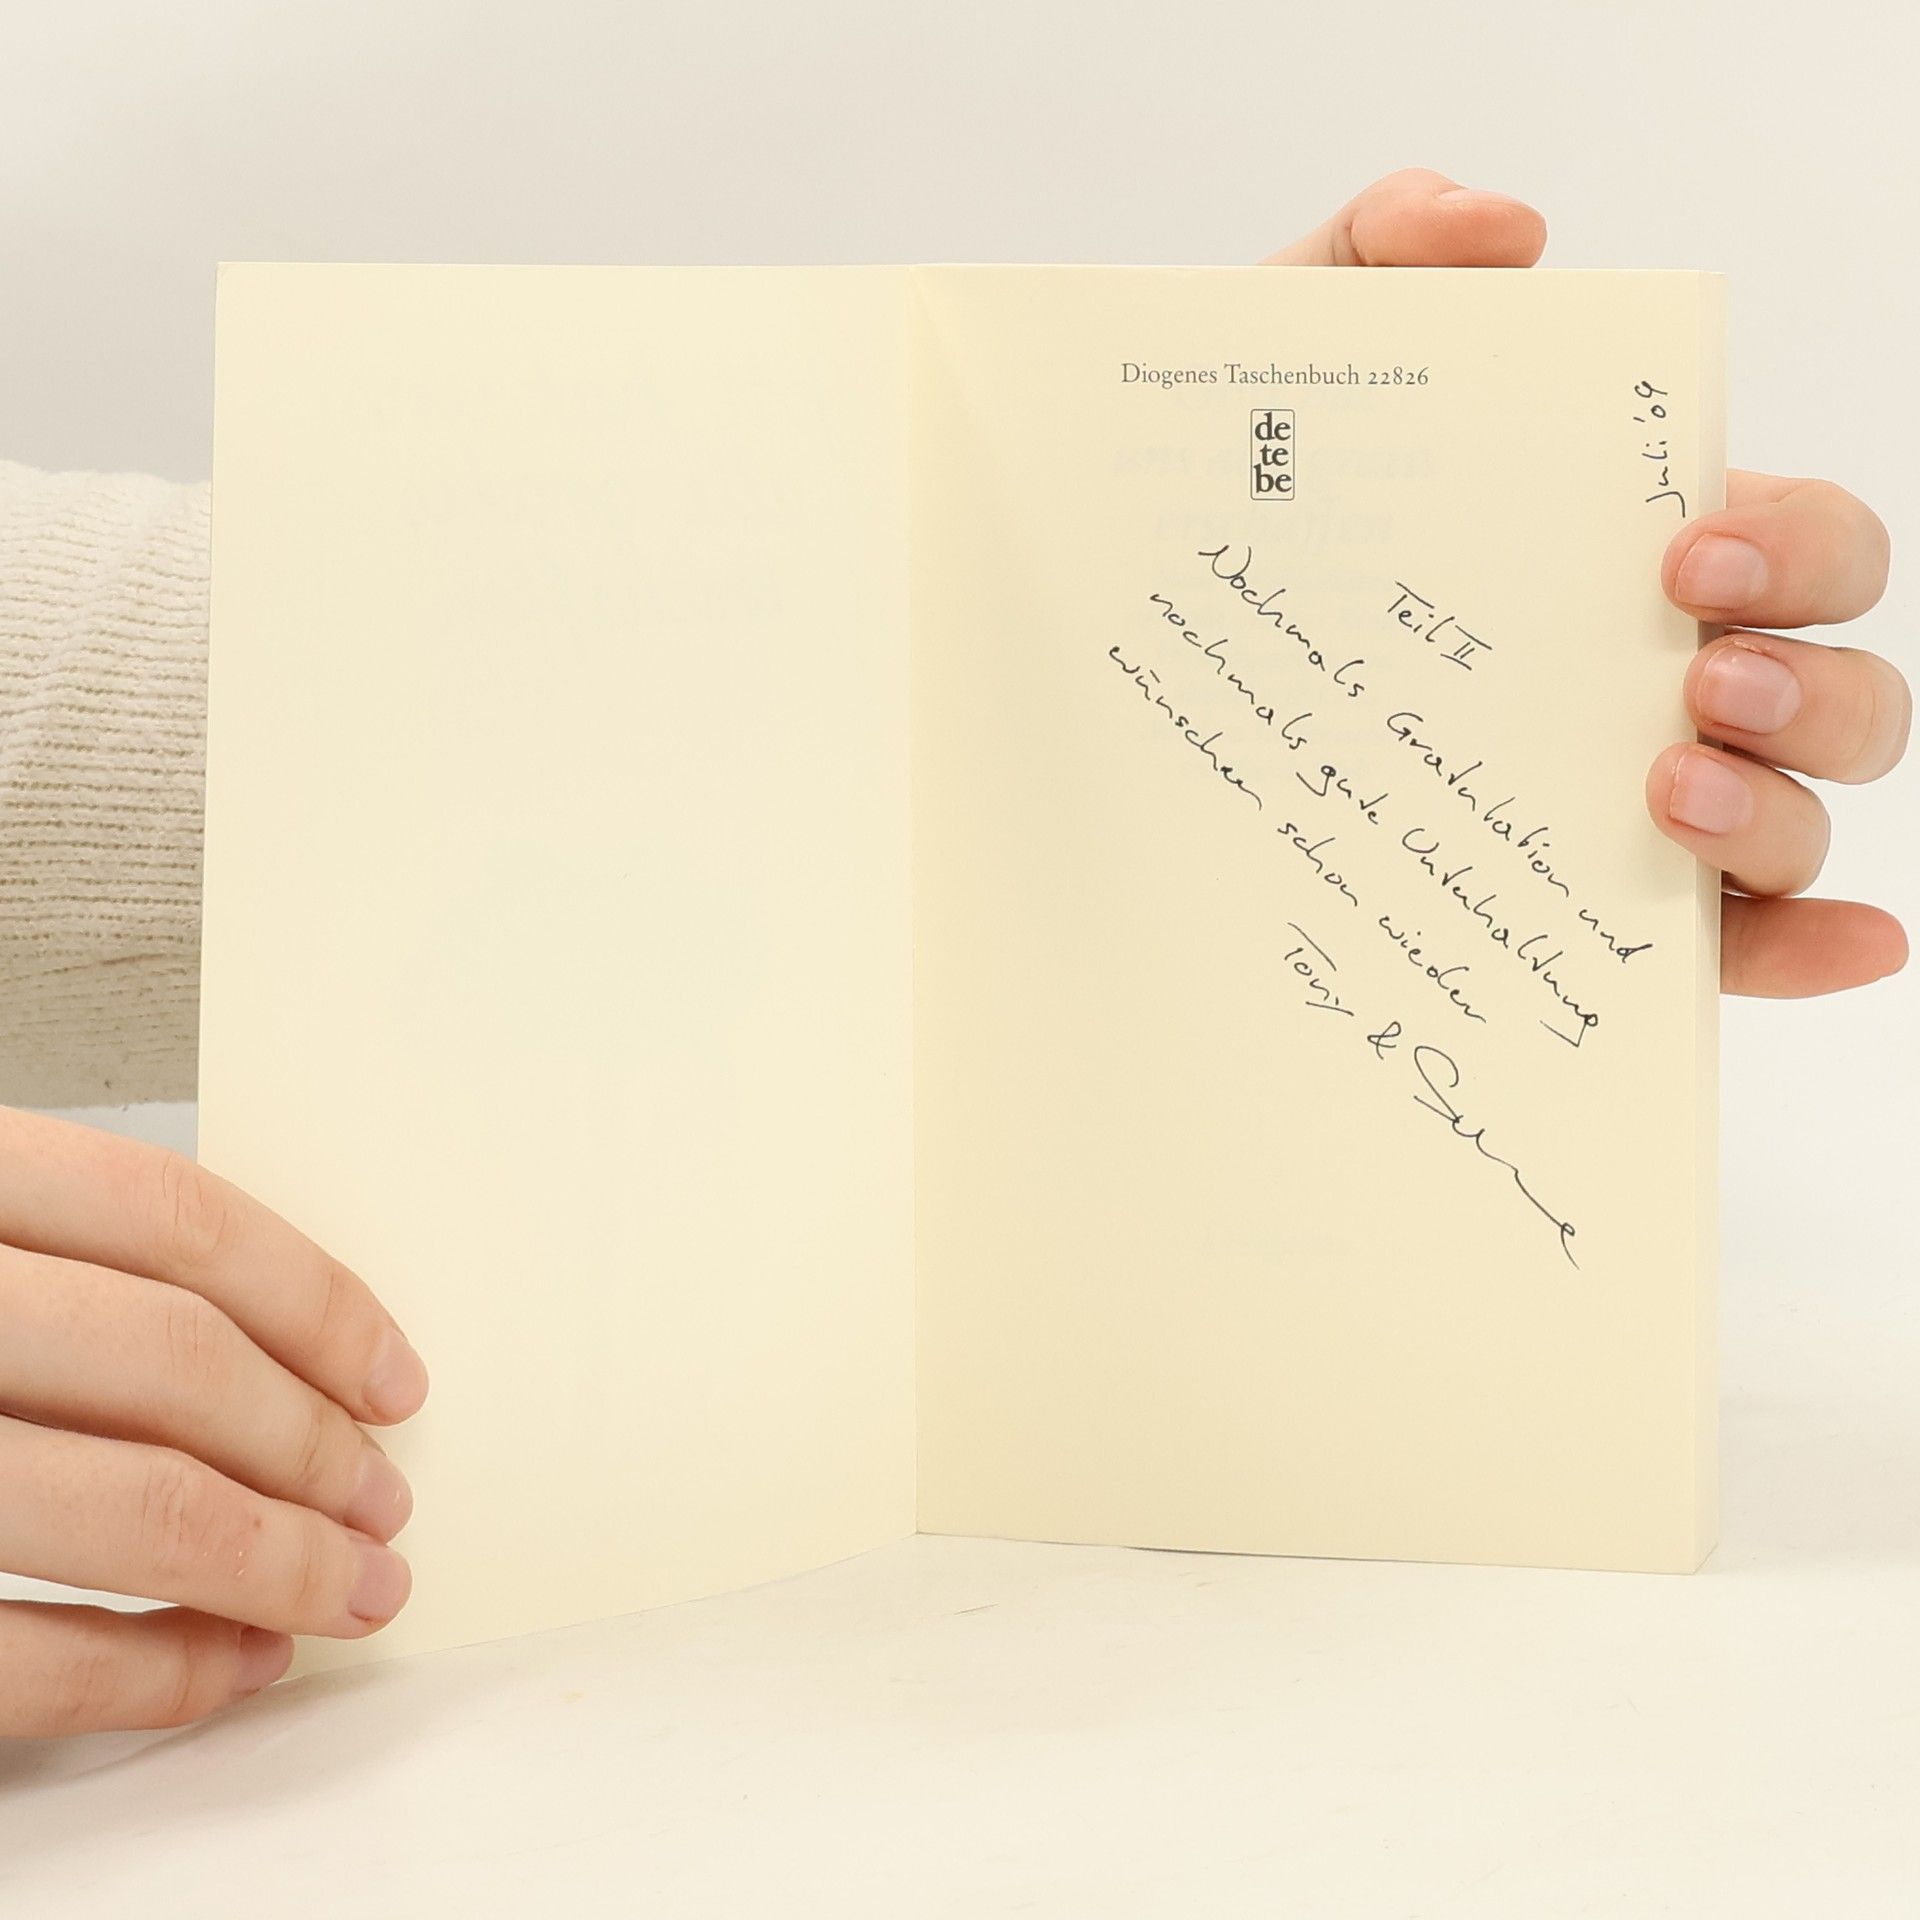 Diogenes Taschenbuch 22826
de
te
be
Juli '09
Teil II
Nochmals Gratulation und
nochmals gute Unterhaltung
wünschen schon wieder
Toni &